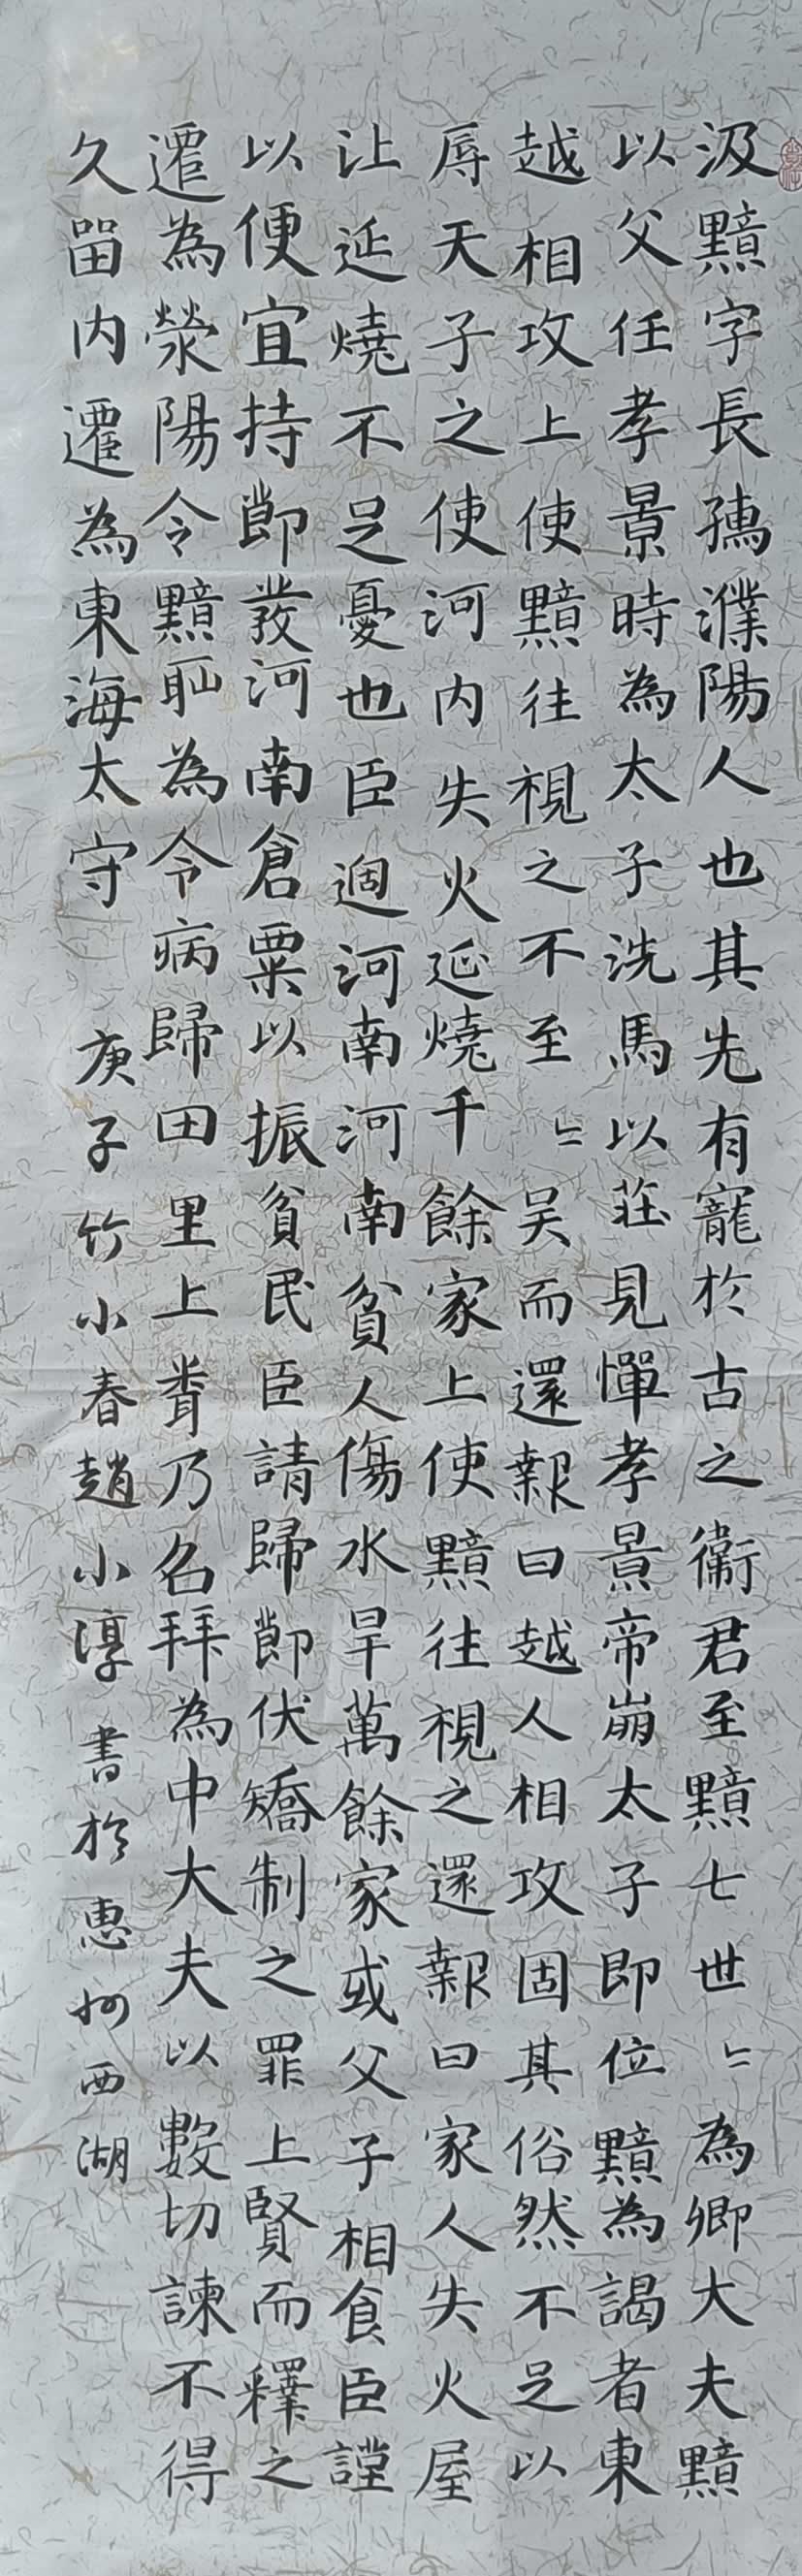 汲黯字長孺濮陽人也其先有寵於古之衞君至黯七世〻為卿大夫黯
以父任孝景時為太子洗馬以莊見憚孝景帝崩太子即位黯為謁者東
越相攻上使黯往視之不至〻吴而還報曰越人相攻固其俗然不足以
辱天子之使河内失火延燒千餘家上使黯往視之還報曰家人失火屋
比延燒不足憂也臣過河南河南貧人傷水旱萬餘家或父子相食臣謹
以便宜持節發河南倉粟以振貧民臣請歸節伏矯制之罪上賢而釋之
遷為滎陽令黯恥為令病歸田里上聞乃召拜為中大夫以數切諫不得
久留内遷為東海太守 庚子竹小春趙小淳書於惠州西湖